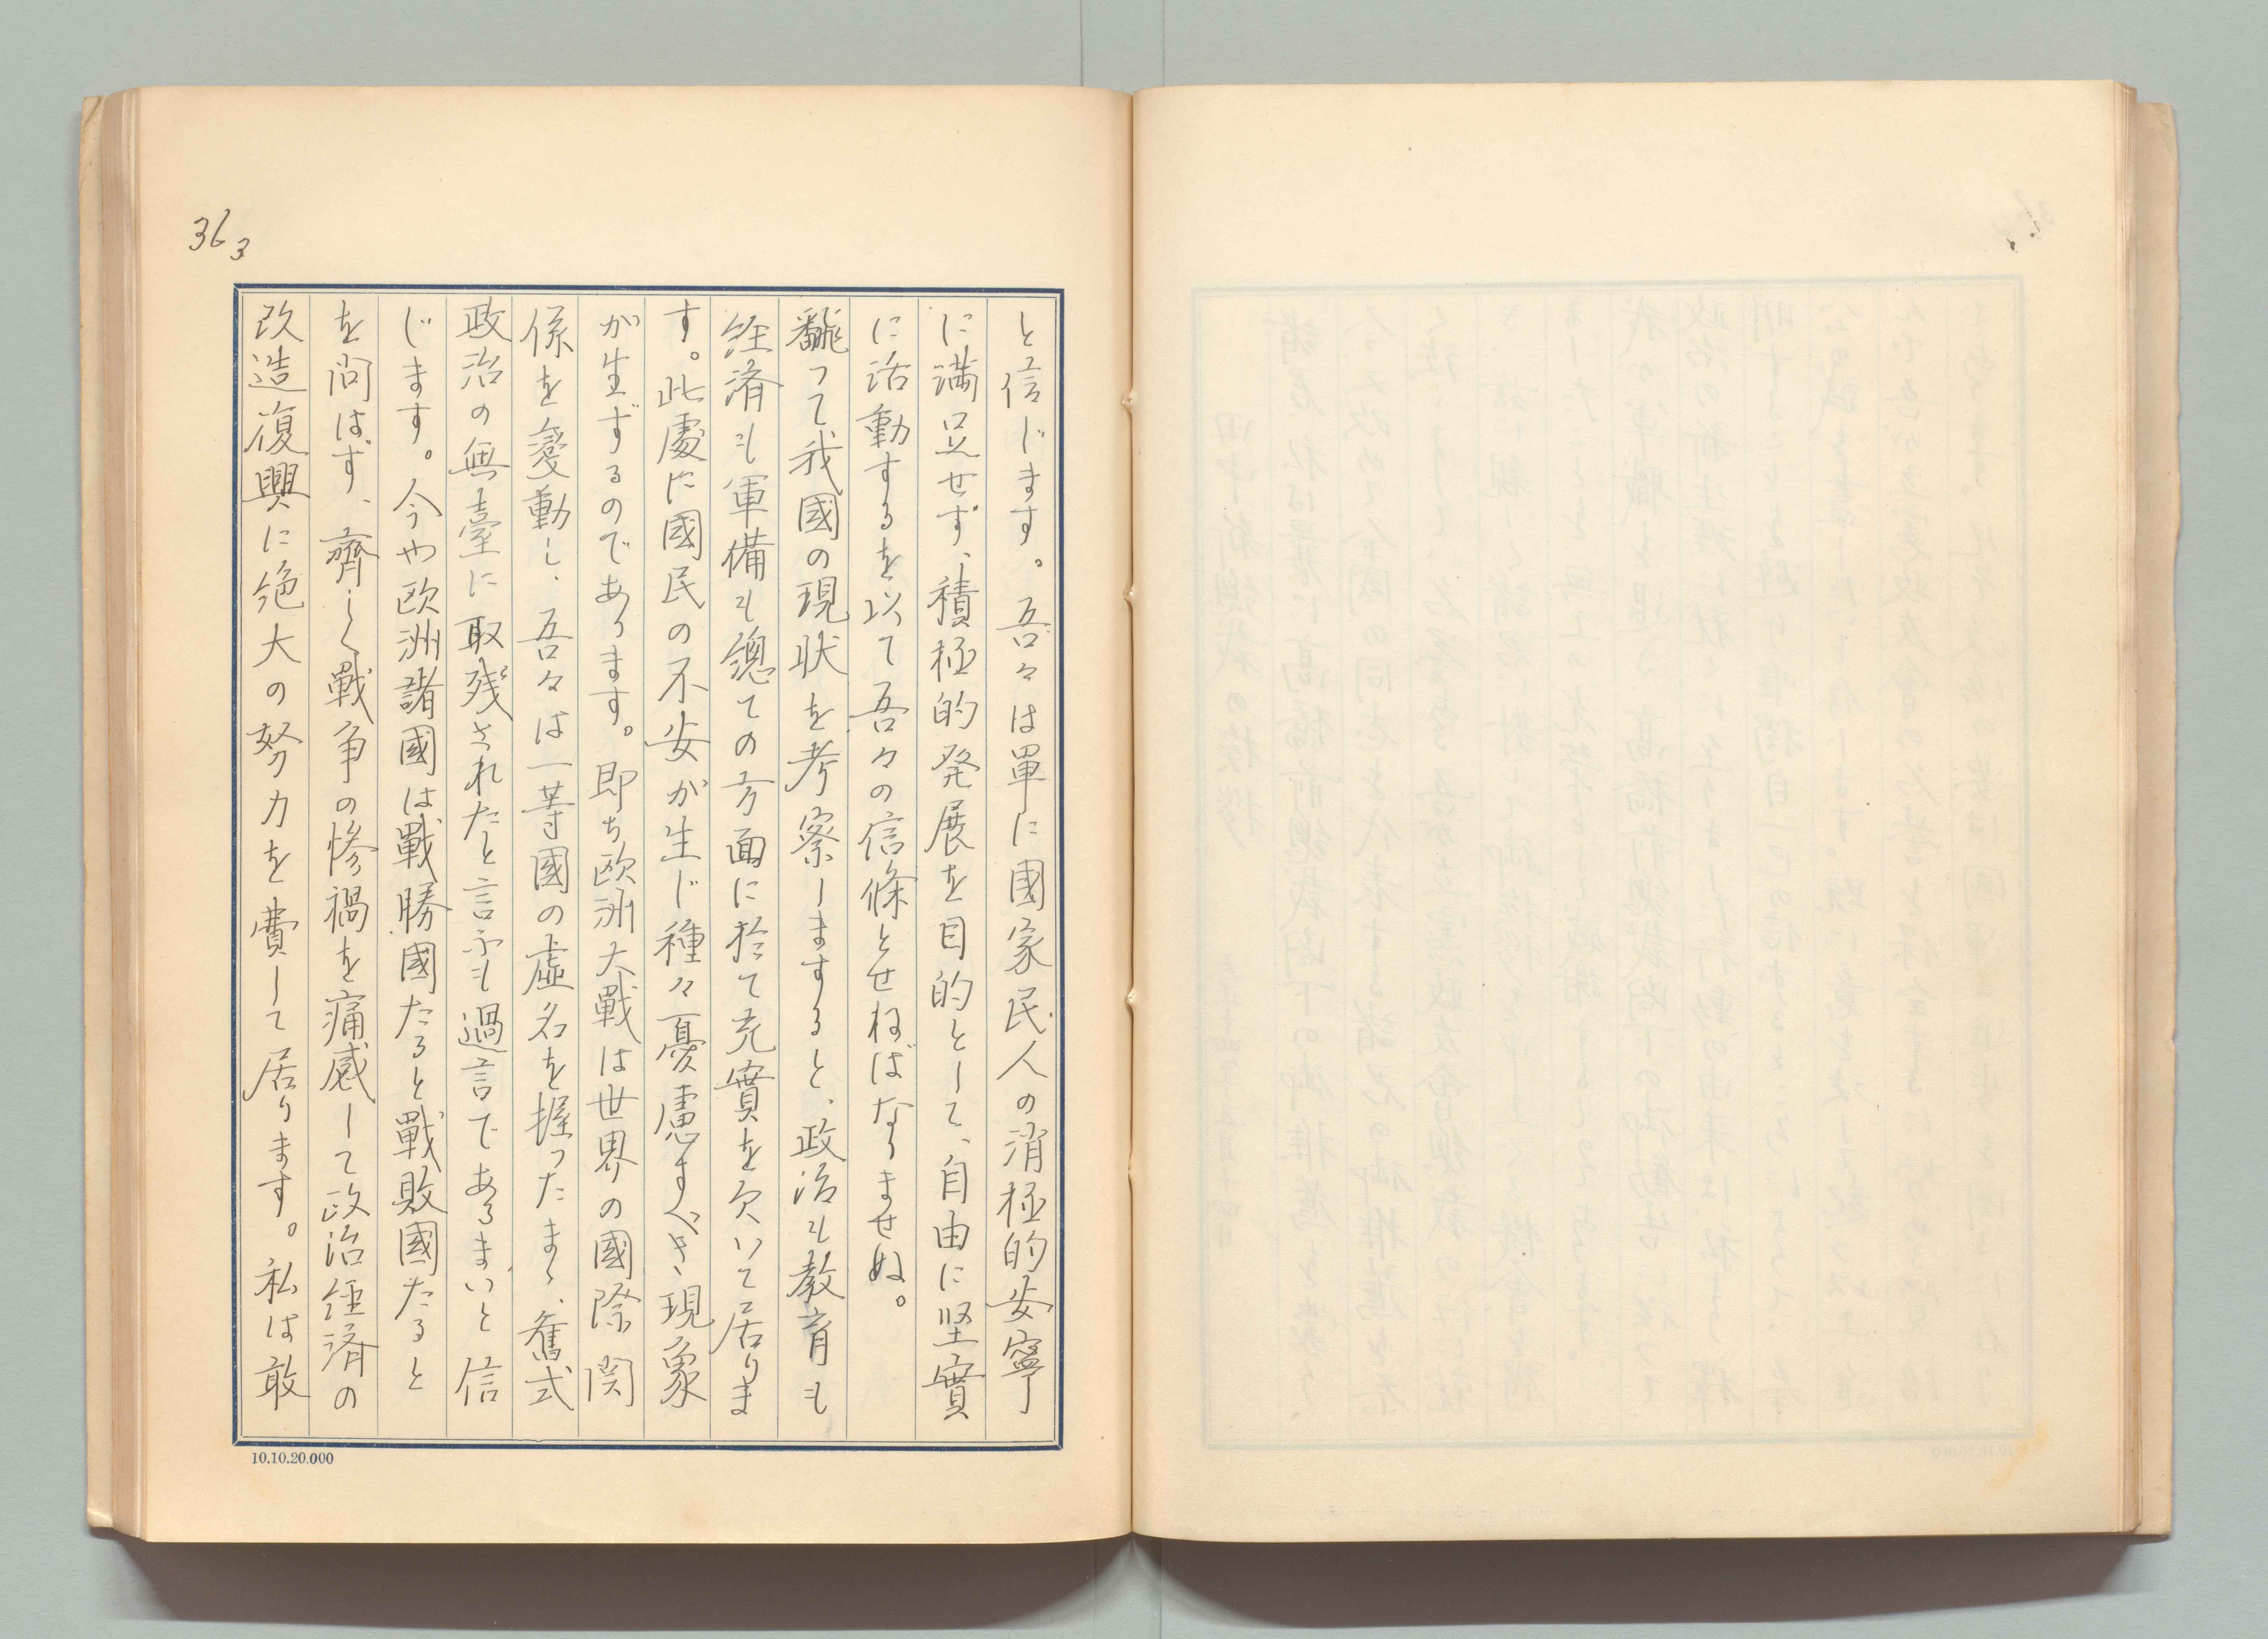 36 3
と信じます。吾々は單に國家民人の消極的安寧
に満足せず、積極的発展を目的として、自由に坚實
に活動するを以て吾々の信條とせねばなりませぬ。
飜って我國の現状を考察しますると、政治も教育も
経済も軍備も總ての方面に於て充實を欠いて居りま
す。此處に國民の不安が生じ種々憂慮すべき現象
が生ずるのであります。即ち欧洲大戰は世界の國際関
係を変動し、吾々は一等國の虚名を握ったまゝ、舊式
政治の無臺に取残されたと言ふも過言であるまいと信
じます。今や欧洲諸國は戰勝國たると戰敗國たると
を问はず、齊しく戰争の惨禍を痛感して政治経済の
改造復興に絶大の努力を費して居ります。私は敢
10.10.20.000